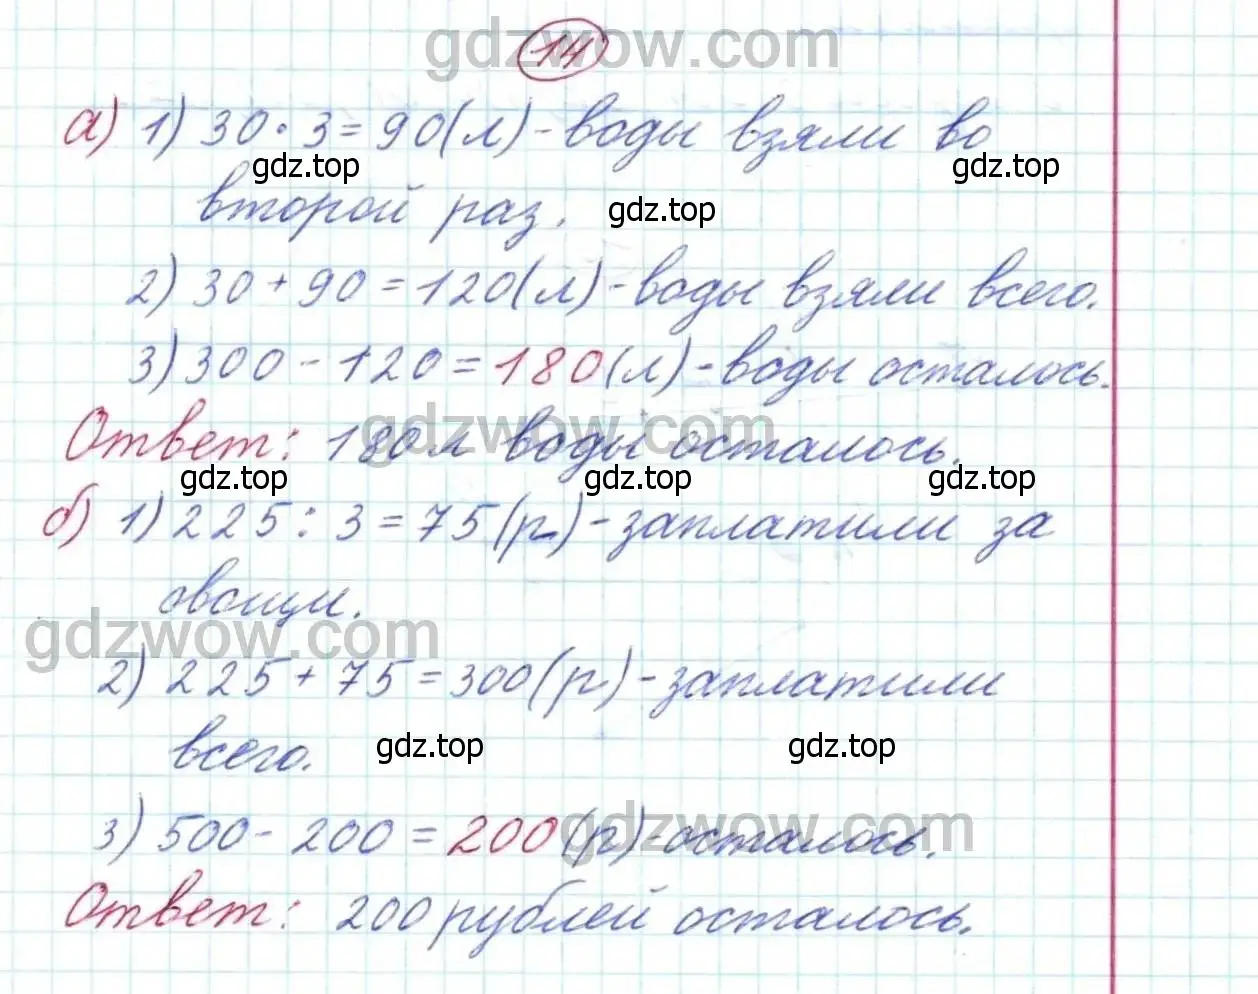 gdzwow.com
14
а) 1) 30 · 3 = 90 (л) - воды взяли во
gdz.top gdz.top
второй раз. gdz.top
2) 30 + 90 = 120 (л) - воды взяли всего.
3) 300 - 120 = 180 (л) - воды осталось.
gdzwow.com
Ответ: 180 л воды осталось.
gdz.top gdz.top gdz.top
б) 1) 225 : 3 = 75 (р) - заплатили за
овощи.
gdzwow.com
2) 225 + 75 = 300 (р) - заплатили
всего. gdz.top gdz.top
3) 500 - 200 = 200 (р) - осталось.
gdzwow.com
Ответ: 200 рублей осталось.